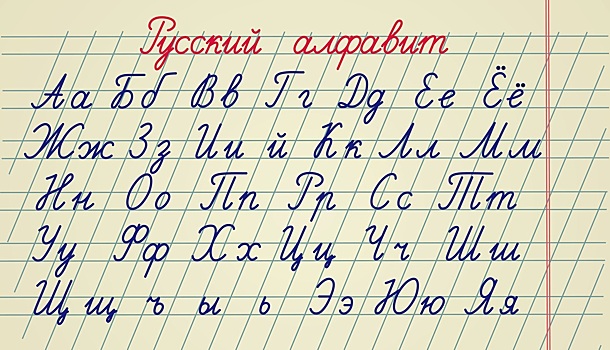 Русский алфавит
Аа Бб Вв Гг Дд Ее Ёё
Жж Зз Ии й Кк Лл Мм
Нн Оо Пп Рр Сс Тт
Уу Фф Хх Цц Чч Шш
Щщ ъ ы ь Ээ Юю Яя